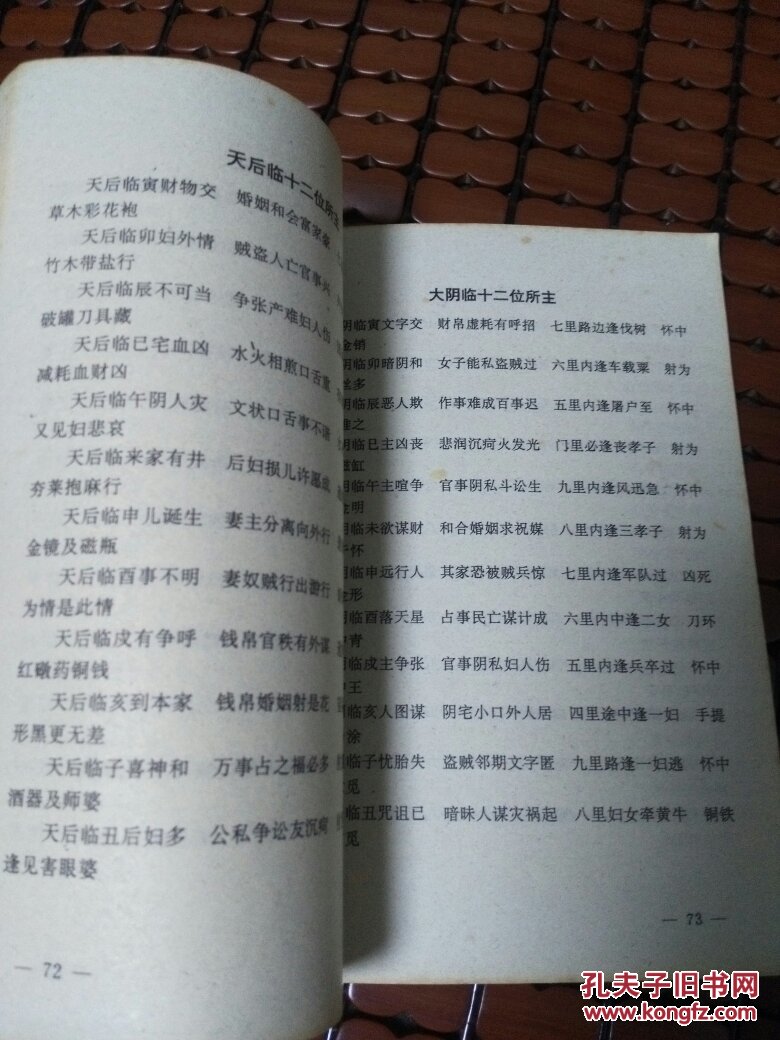 天后临十二位所主
天后临寅财物交 婚姻和会富家豪
草木彩花袍
天后临卯妇外情 贼盗人亡官事
竹木带盐行
天后临辰不可当 争张产难妇人伤
破罐刀具藏
天后临巳宅血凶 水火相煎口舌重
减耗血财凶
天后临午阴人灾 文状口舌事不谐
又见妇悲哀
天后临来家有井 后妇损儿许愿成
夯莱抱麻行
天后临申儿诞生 妻主分离向外行
金镜及磁瓶
天后临酉事不明 妻奴贼行出游行
为情是此情
天后临戍有争呼 钱帛官秩有外谋
红礅药铜钱
天后临亥到本家 钱帛婚姻射是花
形黑更无差
天后临子喜神和 万事占之福必多
酒器及师婆
天后临丑后妇多 公私争讼友沉疴
逢见害眼婆
— 72 —
大阴临十二位所主
阴临寅文字交 财帛虚耗有呼招 七里路边逢伐树 怀中
金销
阴临卯暗阴和 女子能私盗贼过 六里内逢车载粟 射为
丝多
阴临辰恶人欺 作事难成百事迟 五里内屠户至 怀中
之
阴临巳主凶丧 悲润沉疴火发光 门里必逢丧孝子 射为
缸
阴临午主喧争 官事阴私斗讼生 九里内逢风迅急 怀中
明
阴临未欲谋财 和合婚姻求祝媒 八里内逢三孝子 射为
怀
阴临申远行人 其家恐被贼兵惊 七里内逢军队过 凶死
形
阴临酉落天星 占事民亡谋计成 六里内中逢二女 刀环
青
临戍主争张 官事阴私妇人伤 五里内逢兵卒过 怀中
王
临亥人图谋 阴宅小口外人居 四里途中逢一妇 手提
涂
临子忧胎失 盗贼邻期文字匿 九里路逢一妇逃 怀中
觅
临丑咒诅已 暗昧人谋灾祸起 八里妇女牵黄牛 铜铁
觅
— 73 —
孔夫子旧书网
www.kongfz.com